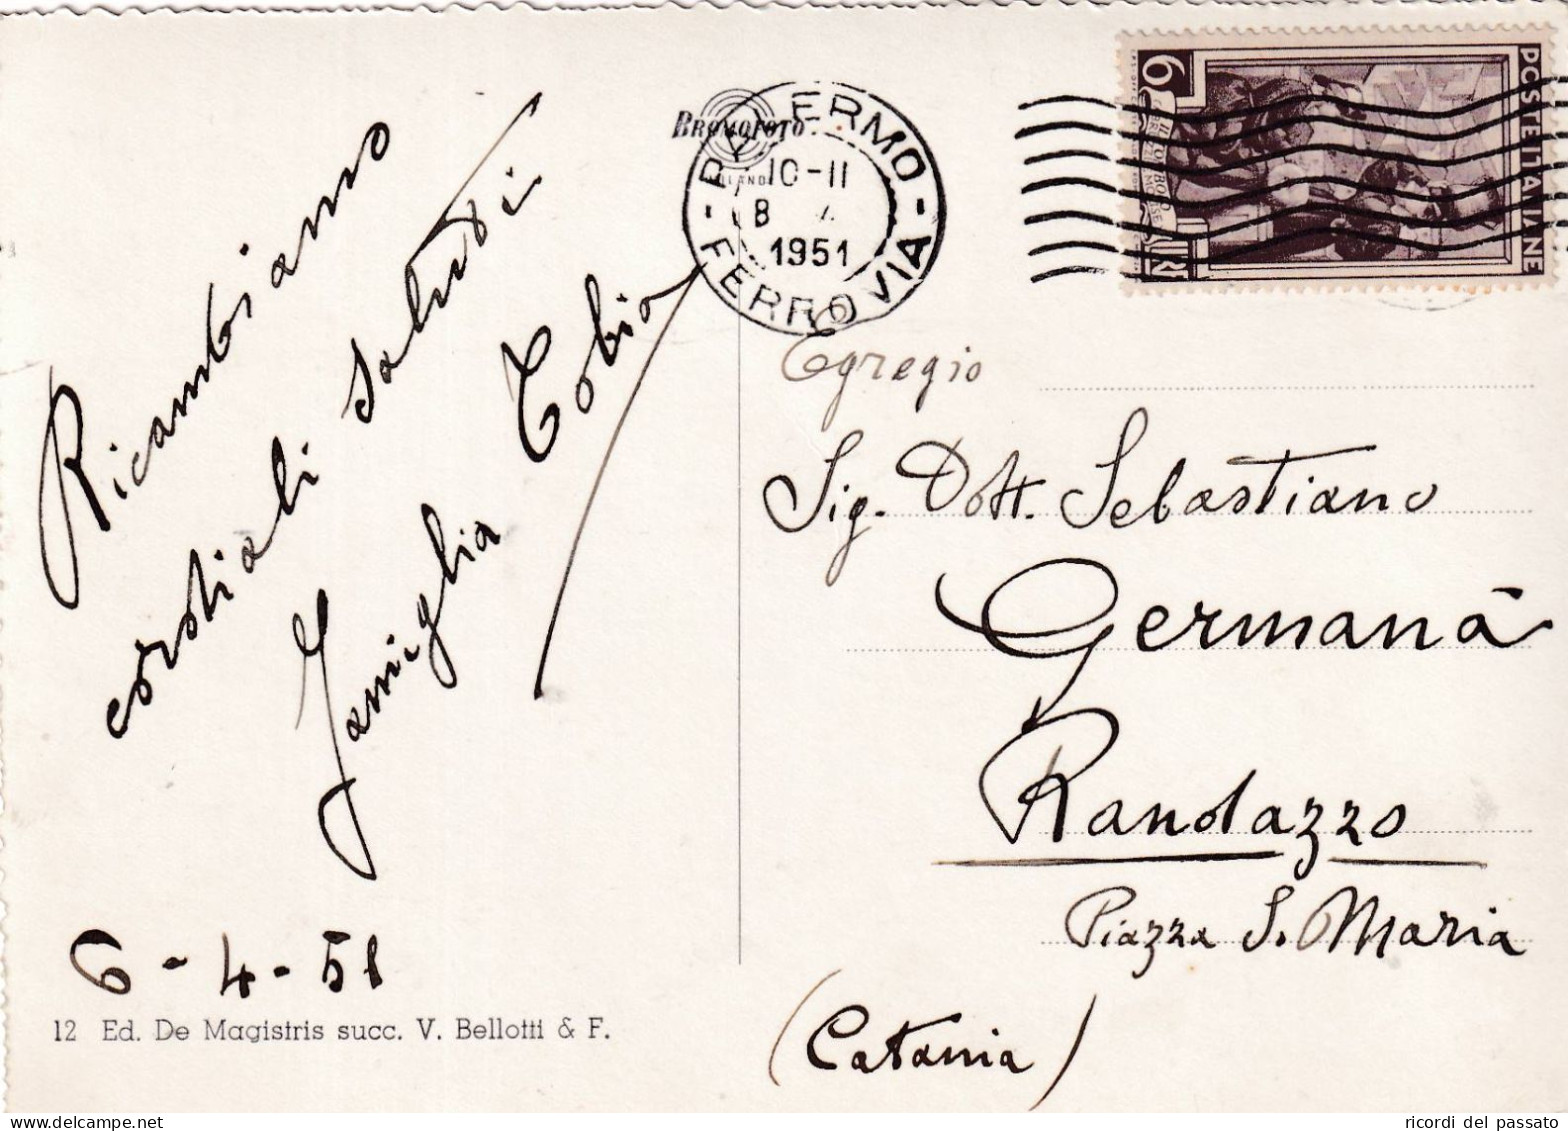 Ricambiamo
cordiali saluti
Famiglia Tobia
6-4-51
12 Ed. De Magistris succ. V. Bellotti & F.
BROMOFOTO
MILANO
PALERMO
10-11
8
1951
FERROVIA
6
POSTE ITALIANE
Egregio
Sig. Dott. Sebastiano
Germanà
Randazzo
Piazza S. Maria
(Catania)
ricordi del passato